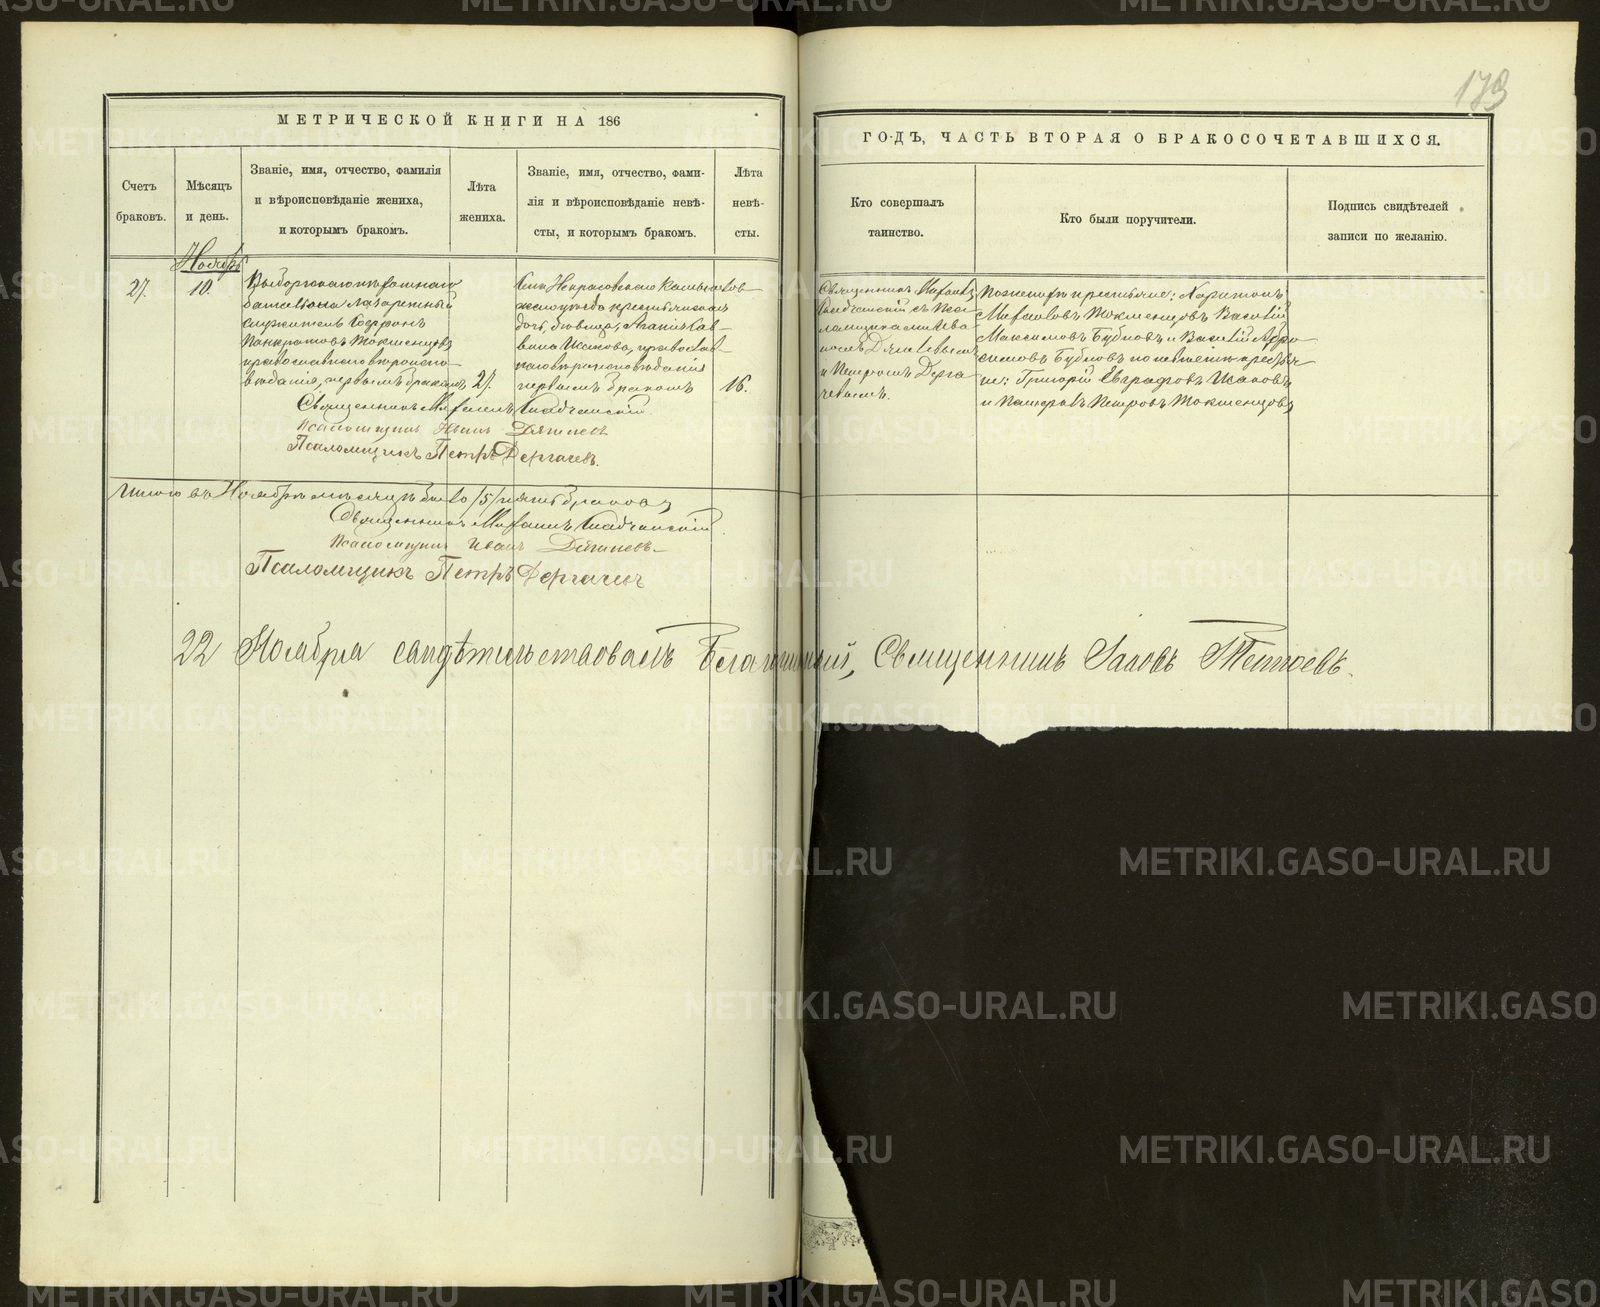 173
МЕТРИЧЕСКОЙ КНИГИ НА 186
ГОДЪ, ЧАСТЬ ВТОРАЯ О БРАКОСОЧЕТАВШИХСЯ.
Счетъ
браковъ.
Мѣсяцъ
и день.
Званіе, имя, отчество, фамилія
и вѣроисповѣданіе жениха,
и которымъ бракомъ.
Лѣта
жениха.
Званіе, имя, отчество, фами-
лія и вѣроисповѣданіе невѣ-
сты, и которымъ бракомъ.
Лѣта
невѣ-
сты.
Кто совершалъ
таинство.
Кто были поручители.
Подпись свидѣтелей
записи по желанію.
Ноябрь
27.
10.
баталіона лазаретный
служитель Софронъ
Панкратовъ Токменцовъ
православнаго вѣроиспо-
вѣданія, первымъ бракомъ
27.
Села Некрасовскаго
дочь, дѣвица, Агапія Сав-
вина Исакова, православ-
наго вѣроисповѣданія
первымъ бракомъ
16.
Священникъ Михаилъ
и Петромъ Дерга-
чевымъ.
По женихѣ крестьяне: Харитонъ
Михайловъ Токменцовъ Василій
Максимовъ Бубновъ и Василій
Бубновъ по невѣстѣ крестья-
не: Григорій Евграфовъ Исаковъ
и Петровъ Токменцовъ
Священникъ Михаилъ
Псаломщикъ Иванъ
Псаломщикъ Петръ Дергачевъ.
Итого въ Ноябрѣ мѣсяцѣ было /5/ пять браковъ
Священникъ Михаилъ
Псаломщикъ Иванъ
Псаломщикъ Петръ Дергачевъ
22 Ноября свидѣтельствовалъ Благочинный, Священникъ Іаковъ
METRIKI.GASO-URAL.RU